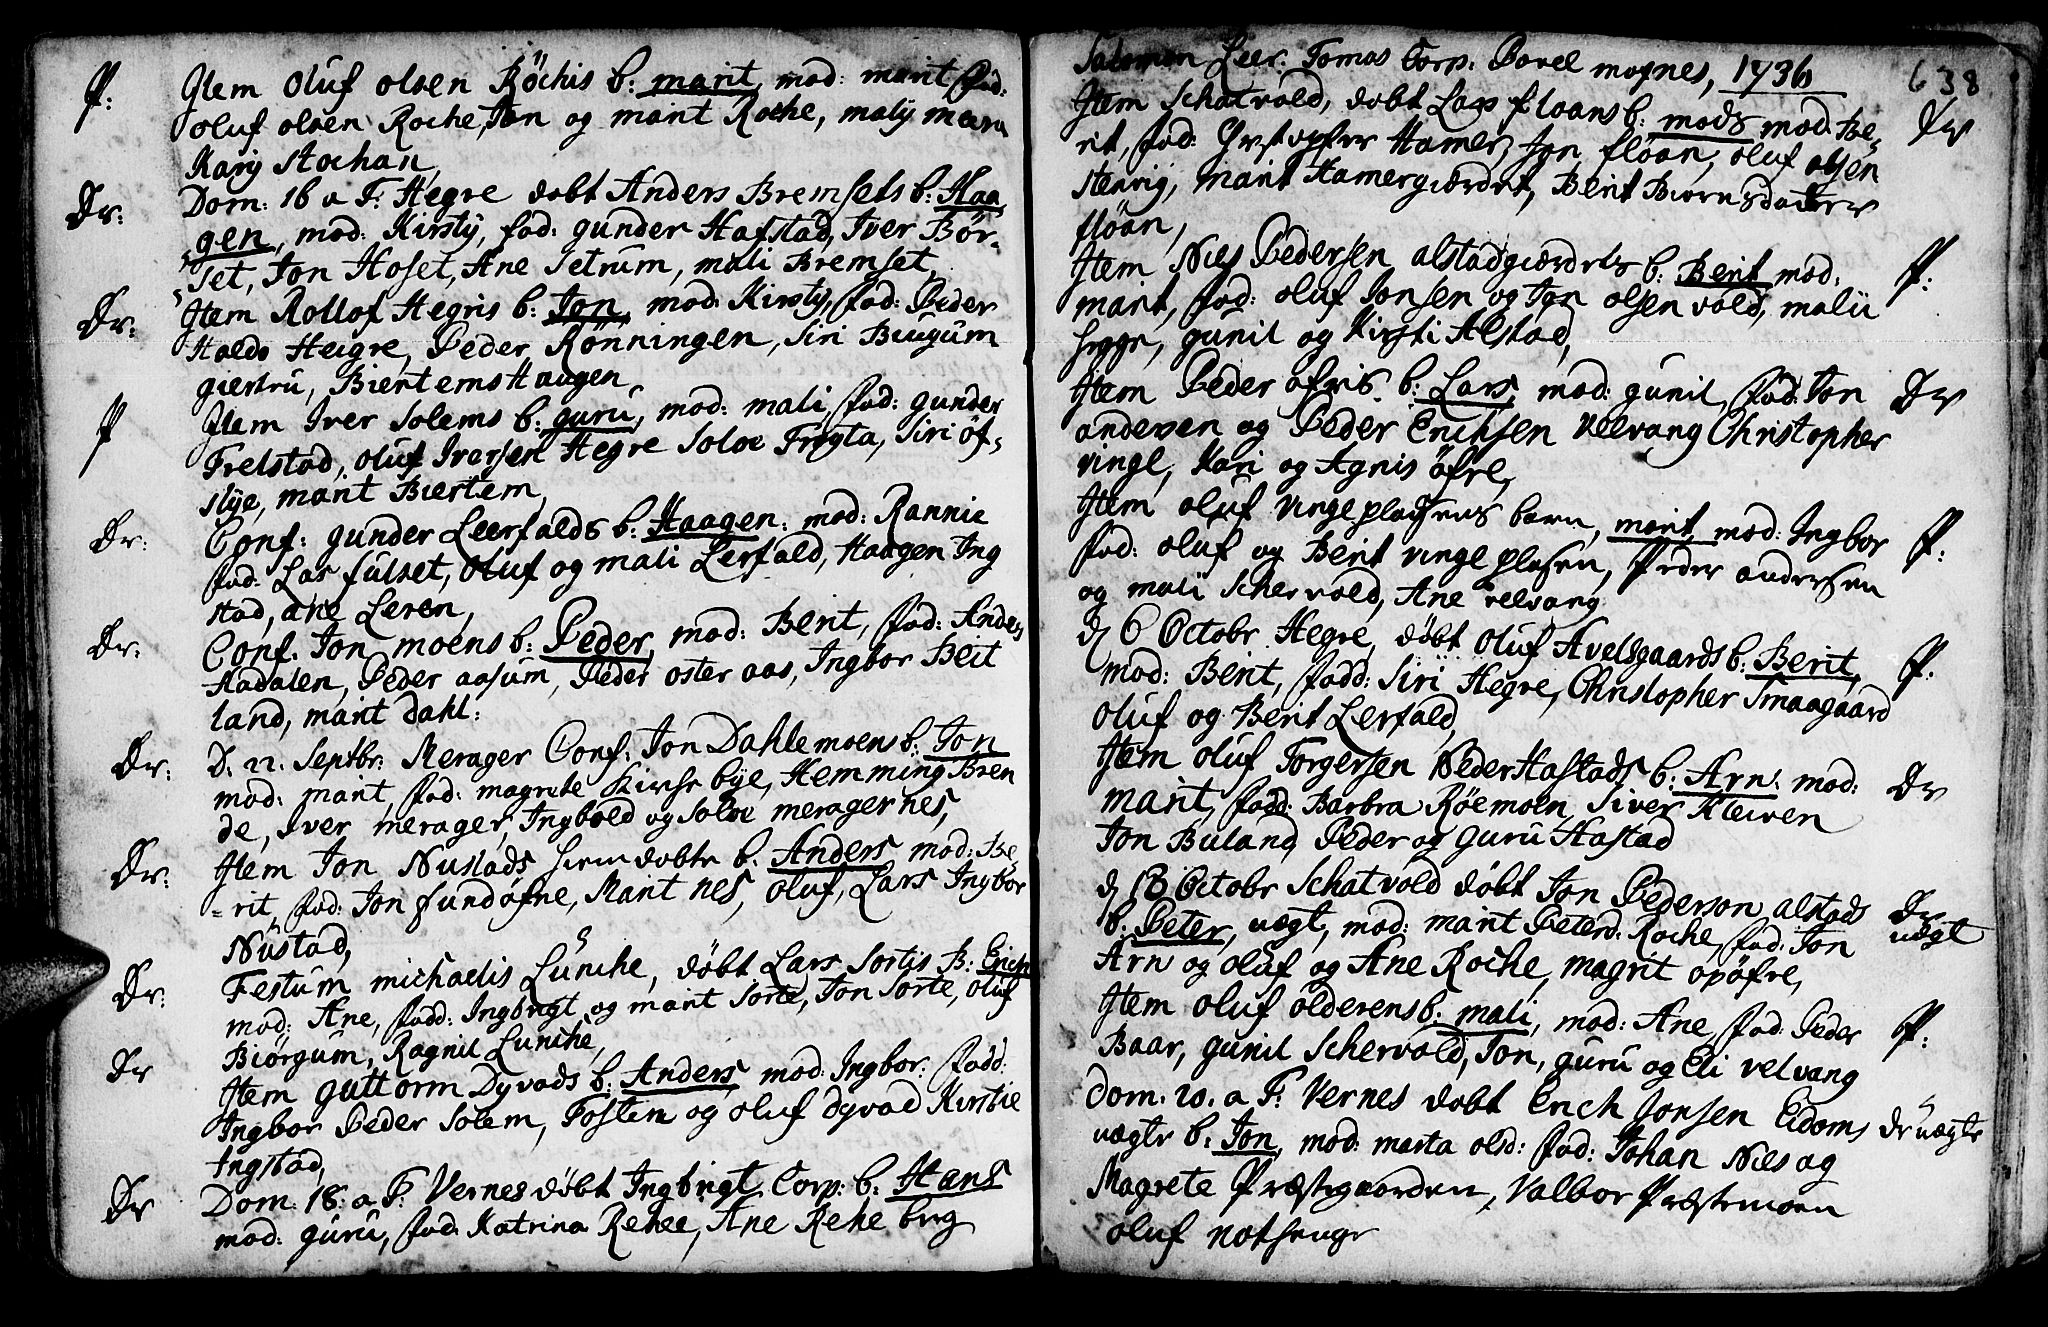 P: Item Oluf olsen Röchis b: marit, mod: marit fad:
oluf olsen Roche, Jon og marit Roche, maly mæra
Karij Stochan,
Dr: Dom: 16 a F. Hegre døbt Anders Bremsets b: Haa¬
gen, mod: Kirsty, fad: gunder Hafstad, Iver Bör¬
set, Jon Hoset, Ane Setrum, mali Bremset,
Dr: Item Rollof Hegris b: Jon, mod: Kirsty, fad: Peder
Halds Heigre, Peder Rönningen, Siri Buugum
giestru, Biertems Haugen
P Item Iver Solems b: guru, mod: mali, fad: gunder
Frelstad, oluf Ivarsen Hegre Solve Frigta, Siri öf¬
stye, marit Biertem,
Dr: Conf: gunder Leerfalds b: Haagen: mod: Rannie
fad: Las fulset, oluf og mali Lerfald, Haagen Ing
stad, ane Leren,
Dr: Conf. Jon moens b: Peder, mod: Berit, fad: Anders
Hadalen, Peder aasum, Peder oster aas, Ingbor Beit
land, marit dahl:
Dr: D: 22. Septbr: Merager Conf: Jon Dahlemoens b: Jon
mod: marit, fad: magrete Kirche bye, Hemming Bren
de, Iver merager, Ingbold og Solve meragernes,
Dr: Item Jon Nustads hiemdøbte b: Anders mod: Be¬
rit, fad: Jon fundöfne, Marit nes, oluf, Lars Ingbor
Nustad,
Dr: Festum michaelis Lunche, døbt Lars Sortis B: Erich
mod: Ane, fadd: Ingbrigt og marit Sorte, Jon Sorte, oluf
Biörgum, Ragnil Lunche,
Dr Item guttorm Dyvads b: Anders mod: Ingbor: fadd:
Ingbor Peder Solem, Tosten og oluf dyvad Kirstie
Ingstad,
Dr Dom. 18: a F. Vernes døbt Ingbrigt Corp: b: Hans
mod: guru, fad: Katrina Rehee, Ane Rehe berg
Salomon Leer. Tomas Corp. Povel mognes, 1736 638
Item Schatvold, døbt Lars floans b: mads mod: Be¬ Dr
rit, fad: Christopher Hamer, Jon flöan, oluf olsen
Stenvig, marit Hamergierdet, Berit Biörnsdatter
flöan,
Item Niels Pedersen alstadgierdets b: Berit mod: P:
marit, fad: oluf Jonsen og Jon olsen vold, malii
hegge, gunil og Kirsti Alstad,
Item Peder öfris b: Lars, mod: gunil, fad: Jon Dr
andersen og Peder Erichsen Velvang Christopher
vinge, Kari og Agnis öfre,
Item oluf vinge pladsens barn, marit mod: Ingbor P:
fad: oluf og Berit vinge plasen, Peder andersen
og mali Schervold, Ane velvang
d 6 Octobr Hegre, døbt oluf Avelsgaards b: Berit, P:
mod: Berit, fadd: Siri Hegre, Christopher Smaagaard
oluf og Berit Lerfald,
Item oluf Torgersen Neder Hastads b: Arn: mod: Dr
marit, fadd: Barbra Röemoen, Siver Kleiven
Jon Buland Peder og guru Hastad
d 13 Octobr Schatvold døbt Jon Pederson alstads Dr
b: Peter, uægt, mod: marit Petersd: Roche, fad: Jon uægt
Arn og oluf og Ane Roche, magrit opöfre,
Item oluf olderens b: mali, mod: Ane, fad: Peder P:
Baar, gunil Schervold, Jon, guru og Eli velvang
Dom. 20. a F. Vernes døbt Erich Jonsen Eidoms dr uægte
uægte b: Jon, mod: marta olsd: fad: Johan Niels og
Magrete Præstegaarden, Valbor Præstemoen
oluf nothenge